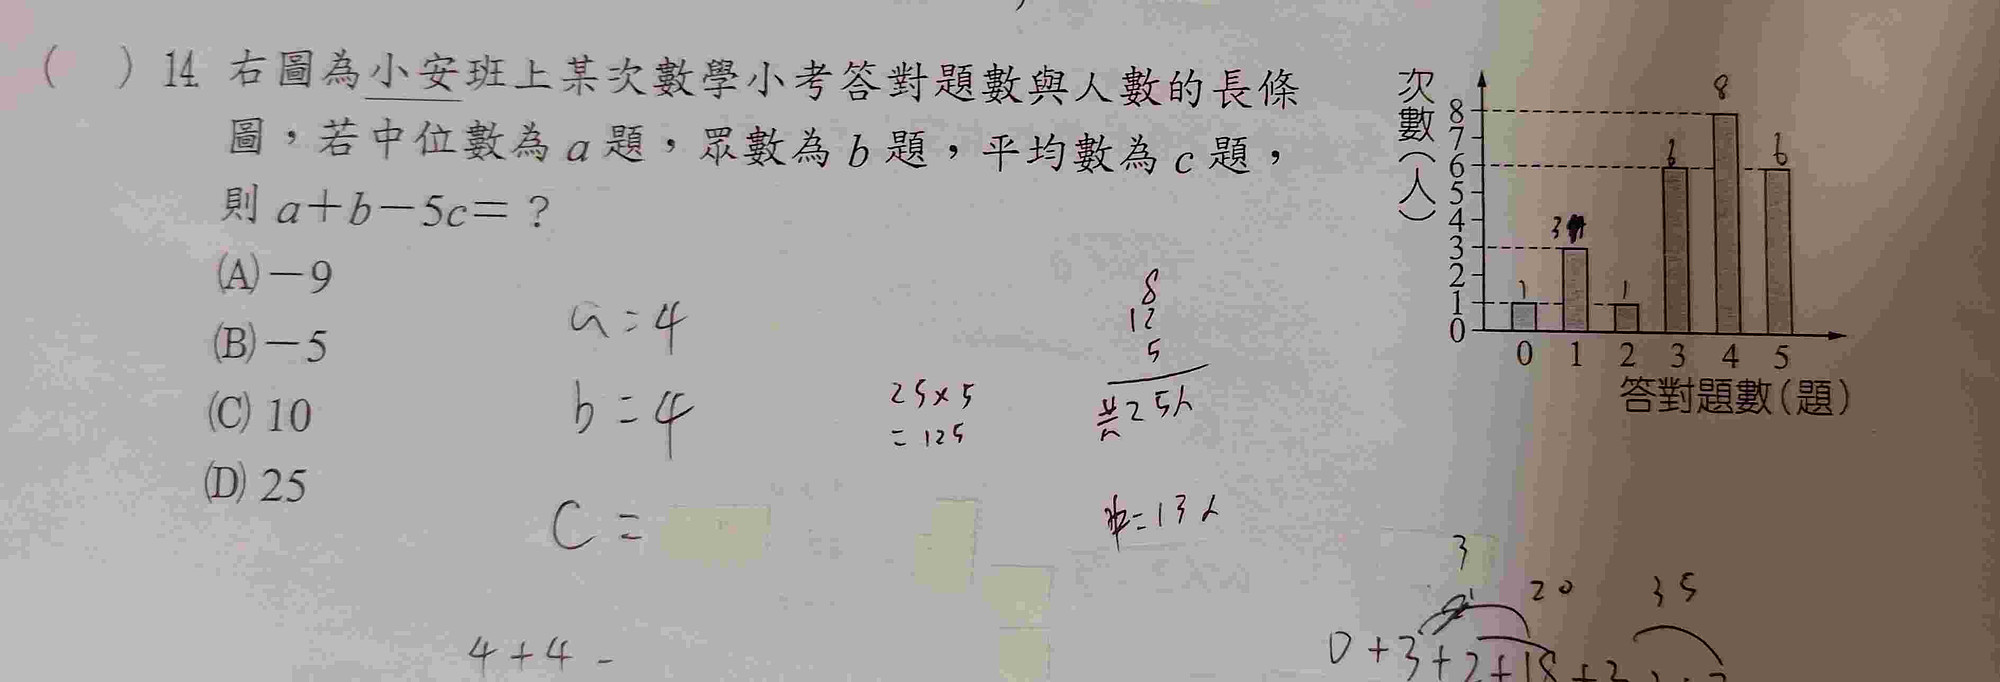 ( ) 14. 右圖為小安班上某次數學小考答對題數與人數的長條
圖，若中位數為 a 題，眾數為 b 題，平均數為 c 題，
則 a＋b－5c＝？
(A)－9
(B)－5
(C) 10
(D) 25
a=4
b=4
C=
4+4-
25×5
=125
8
12
5
共25人
中=13人
次數(人)
8
7
6
5
4
3
2
1
0
1
3
1
6
8
6
0 1 2 3 4 5
答對題數(題)
3
20
35
0+3+2+18+3